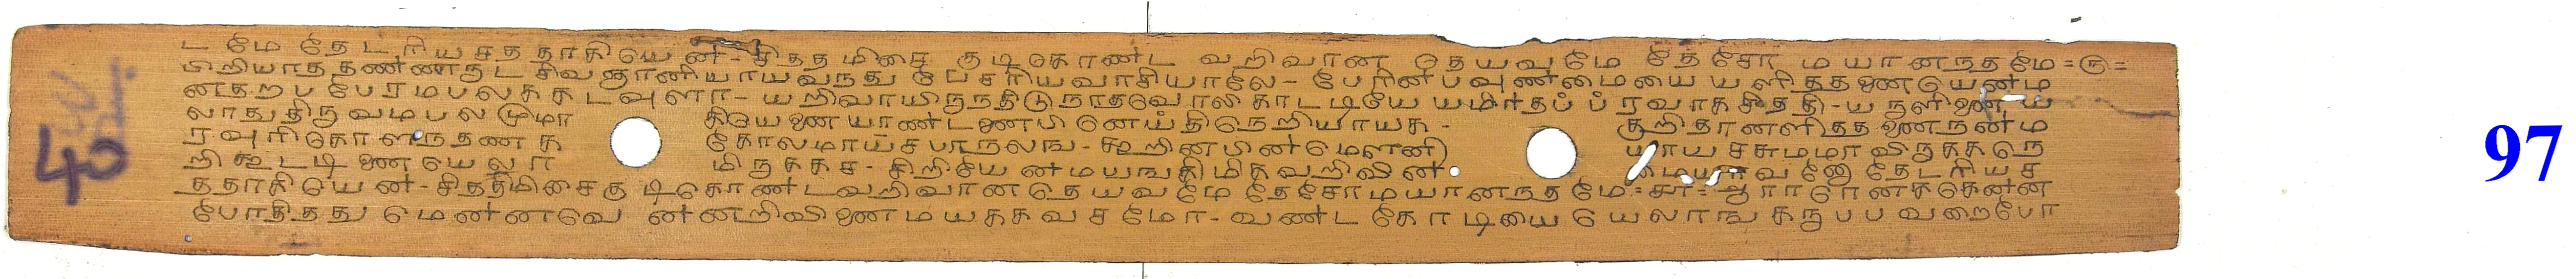 ட மே தே டரிய சத தாகியென் - சிதத மிசை குடிகொண்ட வறிவான தெயவமே தேசோ மயானநதமே = ரு =
பிறியாத தண்ணருட சிவஞானியாயவநது பேசரியவாசியாலே - பேரினபவுண்மையை யளிததணையெண்ம
னதறப பேரமபலககடவுளா - யறிவாயிருநதிடுநாதவொலி காடடியே யமிர்தப் ப்ரவாகசிததி - யருளிணைய
லாதுதிருவமபலமுமா கியெணை யாண்டணைபினெய்திநெறியாயக - குறிதானளிதத ணைநன்ம
ரவுரிகொளநதணக கோலமாய்சபாநலங - கூறினபின்மெளனி யாய சசுமமா விருககநெ
றி கூடடிணையெலா மிருககச - சிறியேன்மயஙகிமிகவறிவின் மையாவனே தேடரியச
ததாகியென் - சிததமிசைகுடிகொண்டவறிவானதெயவமே தேசோமயானநதமே = சா = ஆராரெனககென்ன
போதிதது மென்னவெ ன்னறிவிணை மயககவசமோ - வண்ட கோடியை யெலாஙகருபபவறைபோ
40
97